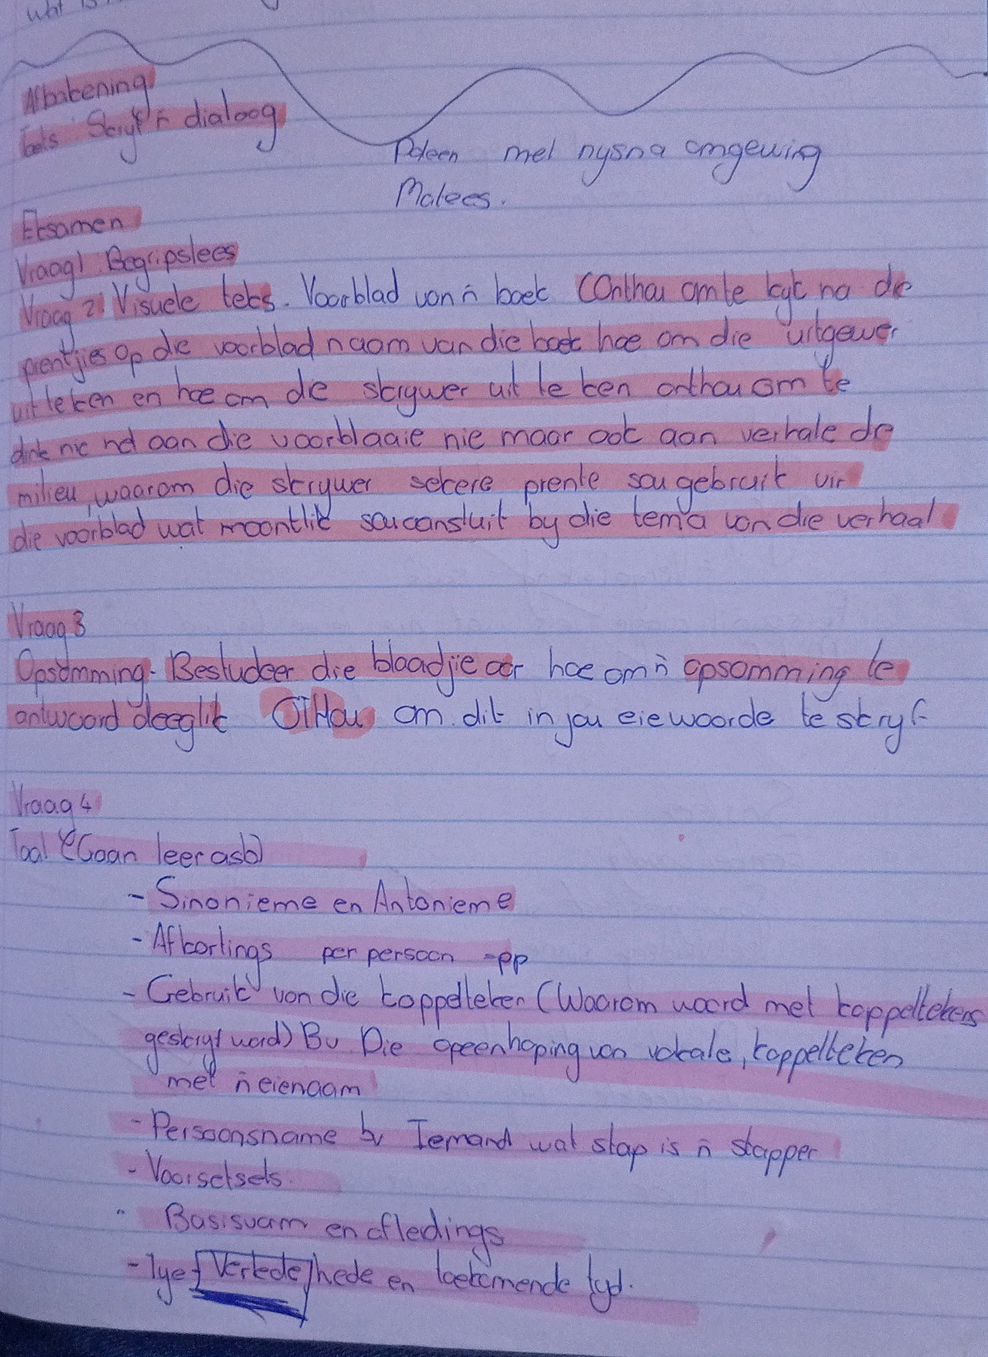 Wat is
Afbakening
Toets Skryf 'n dialoog
met nysna omgewing
Malees.
Eksamen
Vraag1 Begripslees
Vraag 2: Visuele teks. Voorblad van 'n boek (Onthou om te kyk na die
prentjies op die voorblad naam van die boek hoe om die uitgewer
uit te ken en hoe om die skrywer uit te ken onthou om te
dink nie net aan die voorblaaie nie maar ook aan verhale die
milieu, waarom die skrywer sekere prente sou gebruik vir
die voorblad wat moontlik sou aansluit by die tema van die verhaal
Vraag 3
Opsomming. Bestudeer die blaadjie oor hoe om 'n opsomming te
antwoord deeglik OTHou om dit in jou eie woorde te skryf
Vraag 4
Taal (Gaan leer asb)
- Sinonieme en Antonieme
- Afkortings per persoon -pp
- Gebruik van die koppelteken (Waarom word met koppeltekens
geskryf word) Bv Die opeenhoping van vokale, koppelteken
met 'n eienaam
- Persoonsname bv Iemand wat stap is 'n stapper
- Voorsetsels.
Basisvorm en afleidings
- Tye (Verlede, hede en toekomende tyd.